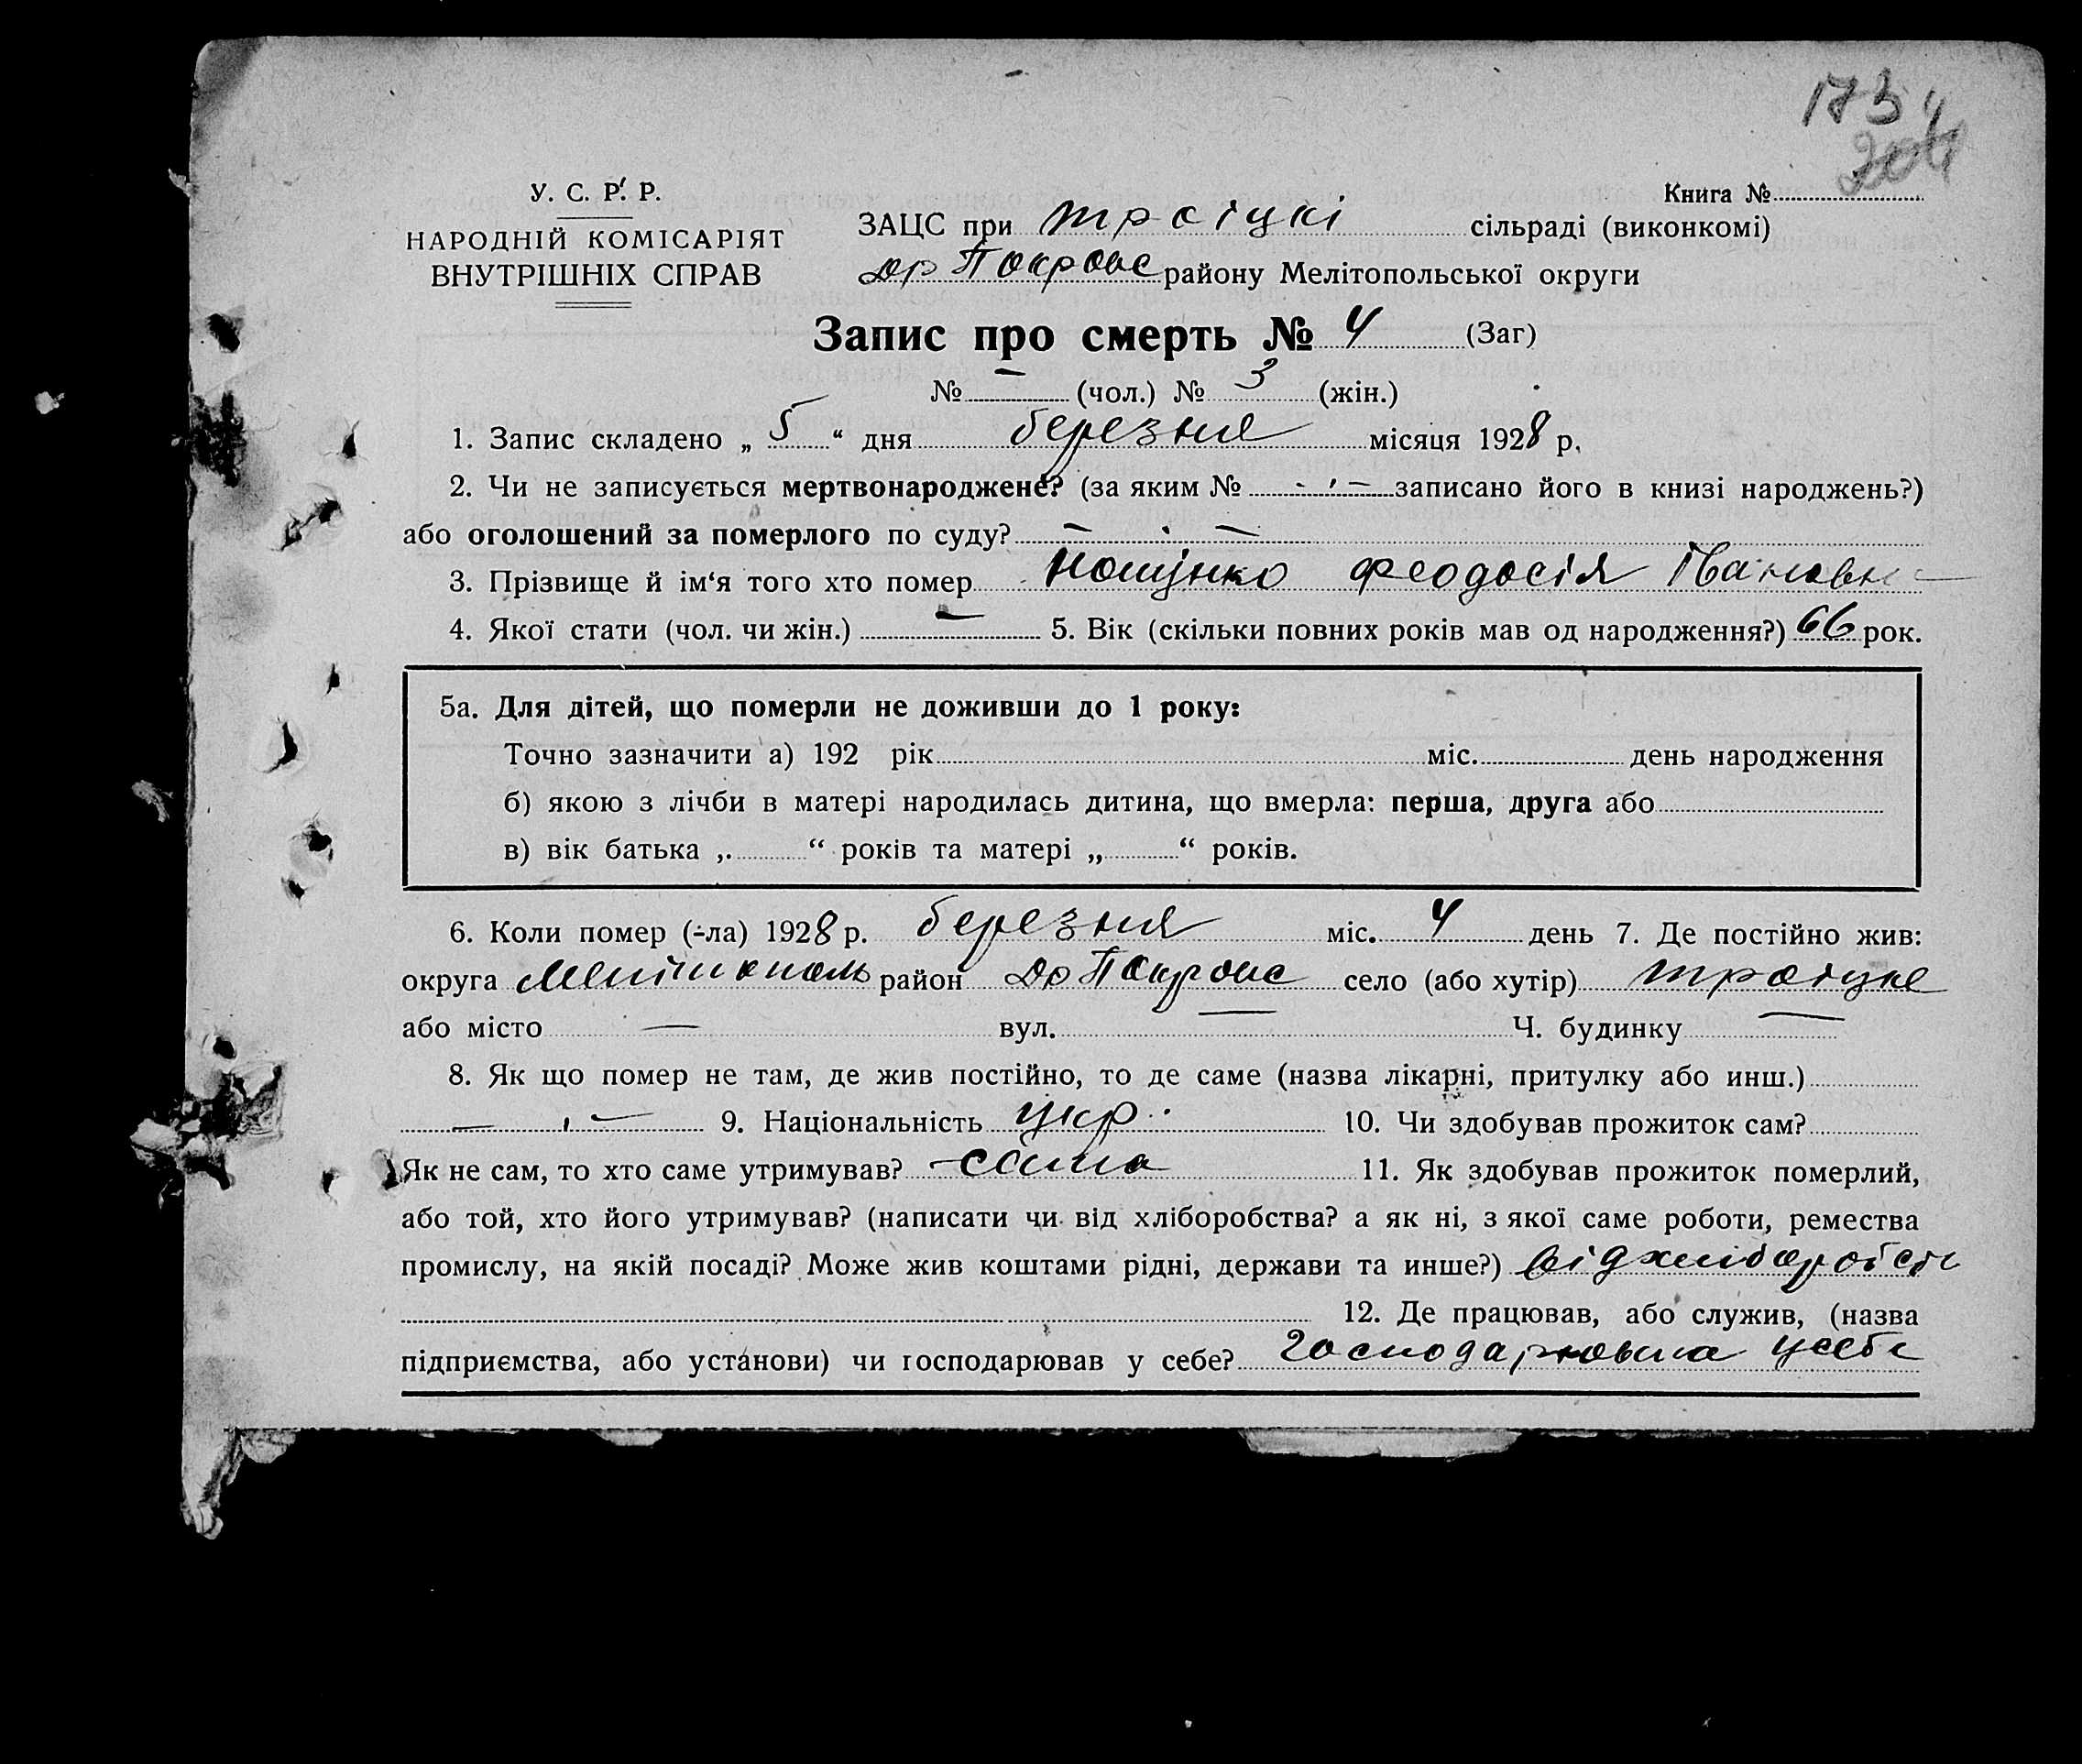 173
204
У. С. Р. Р.
НАРОДНІЙ КОМІСАРІЯТ
ВНУТРІШНІХ СПРАВ
Книга №
ЗАЦС при троїцкі сільраді (виконкомі)
др Покровс району Мелітопольської округи
Запис про смерть № 4 (Заг)
№ — (чол.) № 3 (жін.)
1. Запис складено „ 5 “ дня березня місяця 1928 р.
2. Чи не записується мертвонароджене? (за яким № - ' - записано його в книзі народжень?)
або оголошений за померлого по суду? — . —
3. Прізвище й ім‘я того хто помер Феодосія Івановн
4. Якої стати (чол. чи жін.) — 5. Вік (скільки повних років мав од народження?) 66 рок.
5а. Для дітей, що померли не доживши до 1 року:
Точно зазначити а) 192 рік міс. день народження
б) якою з лічби в матері народилась дитина, що вмерла: перша, друга або
в) вік батька „ “ років та матері „ “ років.
6. Коли помер (-ла) 1928 р. березня міс. 4 день 7. Де постійно жив:
округа Мелітополь район Др Покровс село (або хутір) троїцке
або місто — вул. — Ч. будинку —
8. Як що помер не там, де жив постійно, то де саме (назва лікарні, притулку або инш.)
— ' — 9. Національність укр. 10. Чи здобував прожиток сам?
Як не сам, то хто саме утримував? сама 11. Як здобував прожиток померлий,
або той, хто його утримував? (написати чи від хліборобства? а як ні, з якої саме роботи, ремества
промислу, на якій посаді? Може жив коштами рідні, держави та инше?) від хліборобств
12. Де працював, або служив, (назва
підприємства, або установи) чи господарював у себе? господарювала усебе